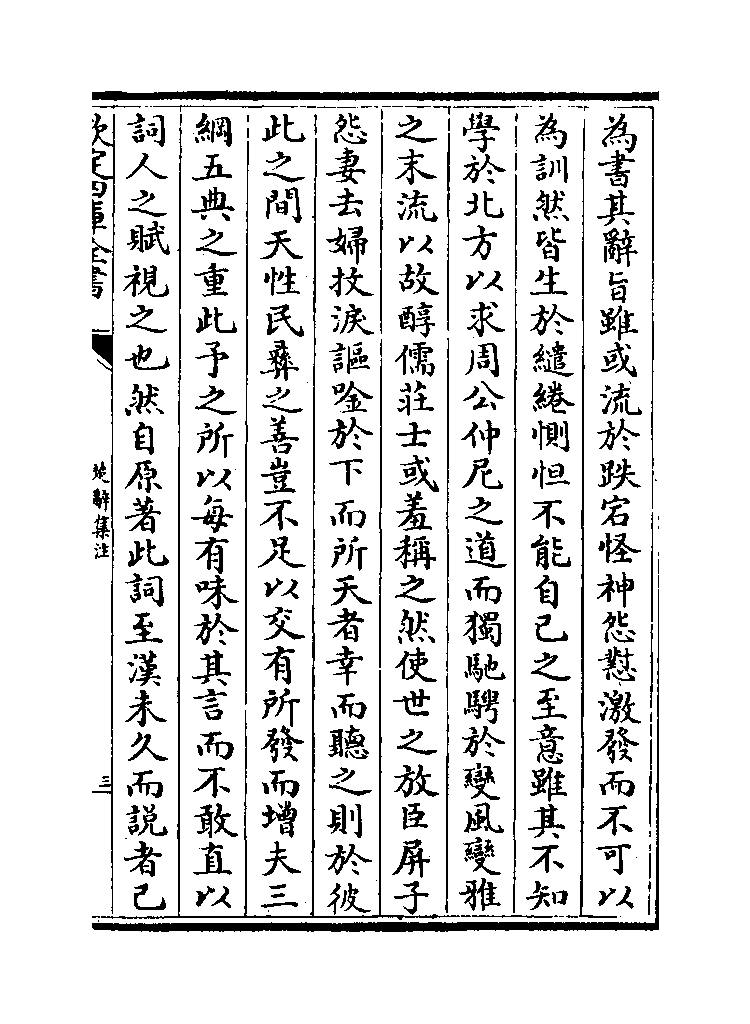 為書其辭旨雖或流於跌宕怪神怨懟激發而不可以
為訓然皆生於繾綣惻怛不能自已之至意雖其不知
學於北方以求周公仲尼之道而獨馳騁於變風變雅
之末流以故醇儒莊士或羞稱之然使世之放臣屏子
怨妻去婦抆淚謳唫於下而所天者幸而聽之則於彼
此之間天性民彝之善豈不足以交有所發而增夫三
綱五典之重此予之所以每有味於其言而不敢直以
詞人之賦視之也然自原著此詞至漢未久而説者已
欽定四庫全書
楚辭集注
三